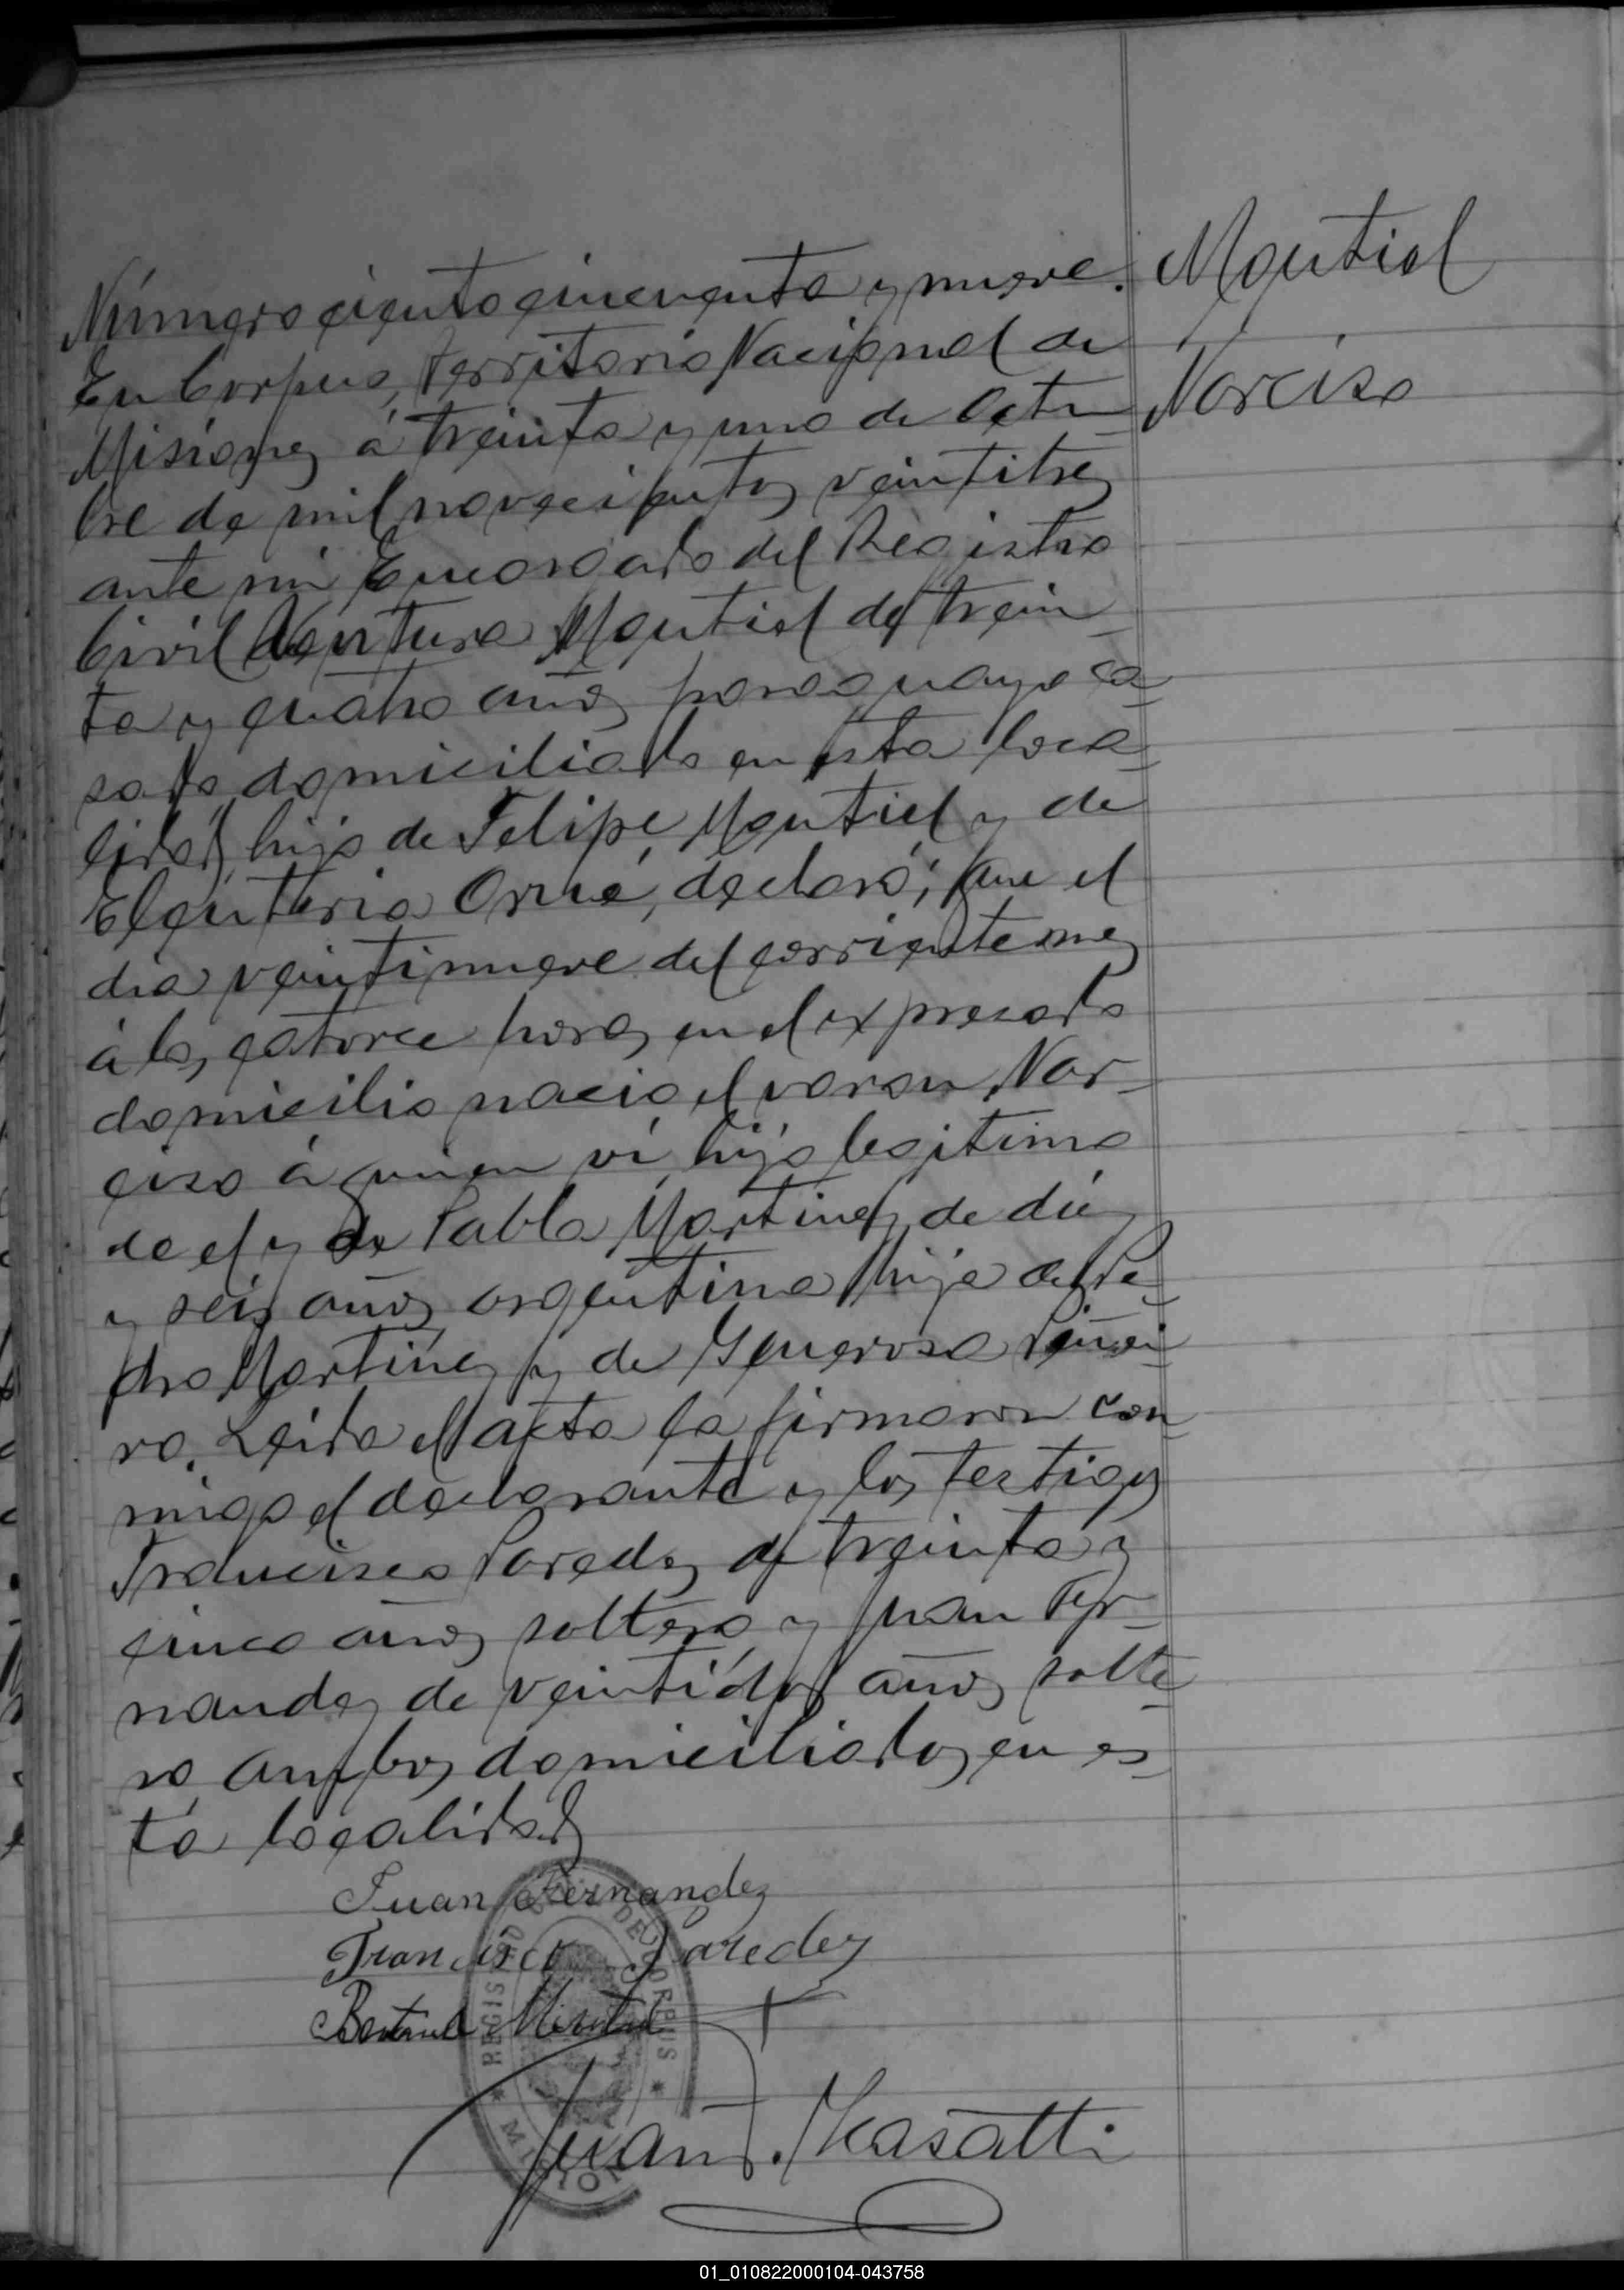 Número ciento cincuenta y nueve.
En Corpus, Territorio Nacional de
Misiones á treinta y uno de Octu-
bre de mil novecientos veintitres
ante mi Encargado del Registro
Civil Ventura Montiel de trein-
ta y cuatro años paraguayo ca-
sado domiciliado en esta loca-
lidad, hijo de Felipe Montiel y de
Eleuteria Orué, declaró; Que el
dia veintinueve del corriente mes
á las catorce horas en el expresado
domicilio nacio el varon Nar-
ciso á quien ví hijo legitimo
de el y de Pabla Martinez de diez
y seis años argentina hija de Pe-
dro Martinez y de Generosa Piñei-
ro. Leida el acta la firmaron con-
migo el declarante y los testigos
Francisco Paredes de treinta y
cinco años soltero y Juan Fer-
nandez de veintidos años solte-
ro, ambos domiciliados en es-
ta localidad
Montiel
Narciso
Juan Fernandez
Francisco Paredes
Juan
REGISTRO DE CORPUS
* MISIONES *
01_010822000104-043758